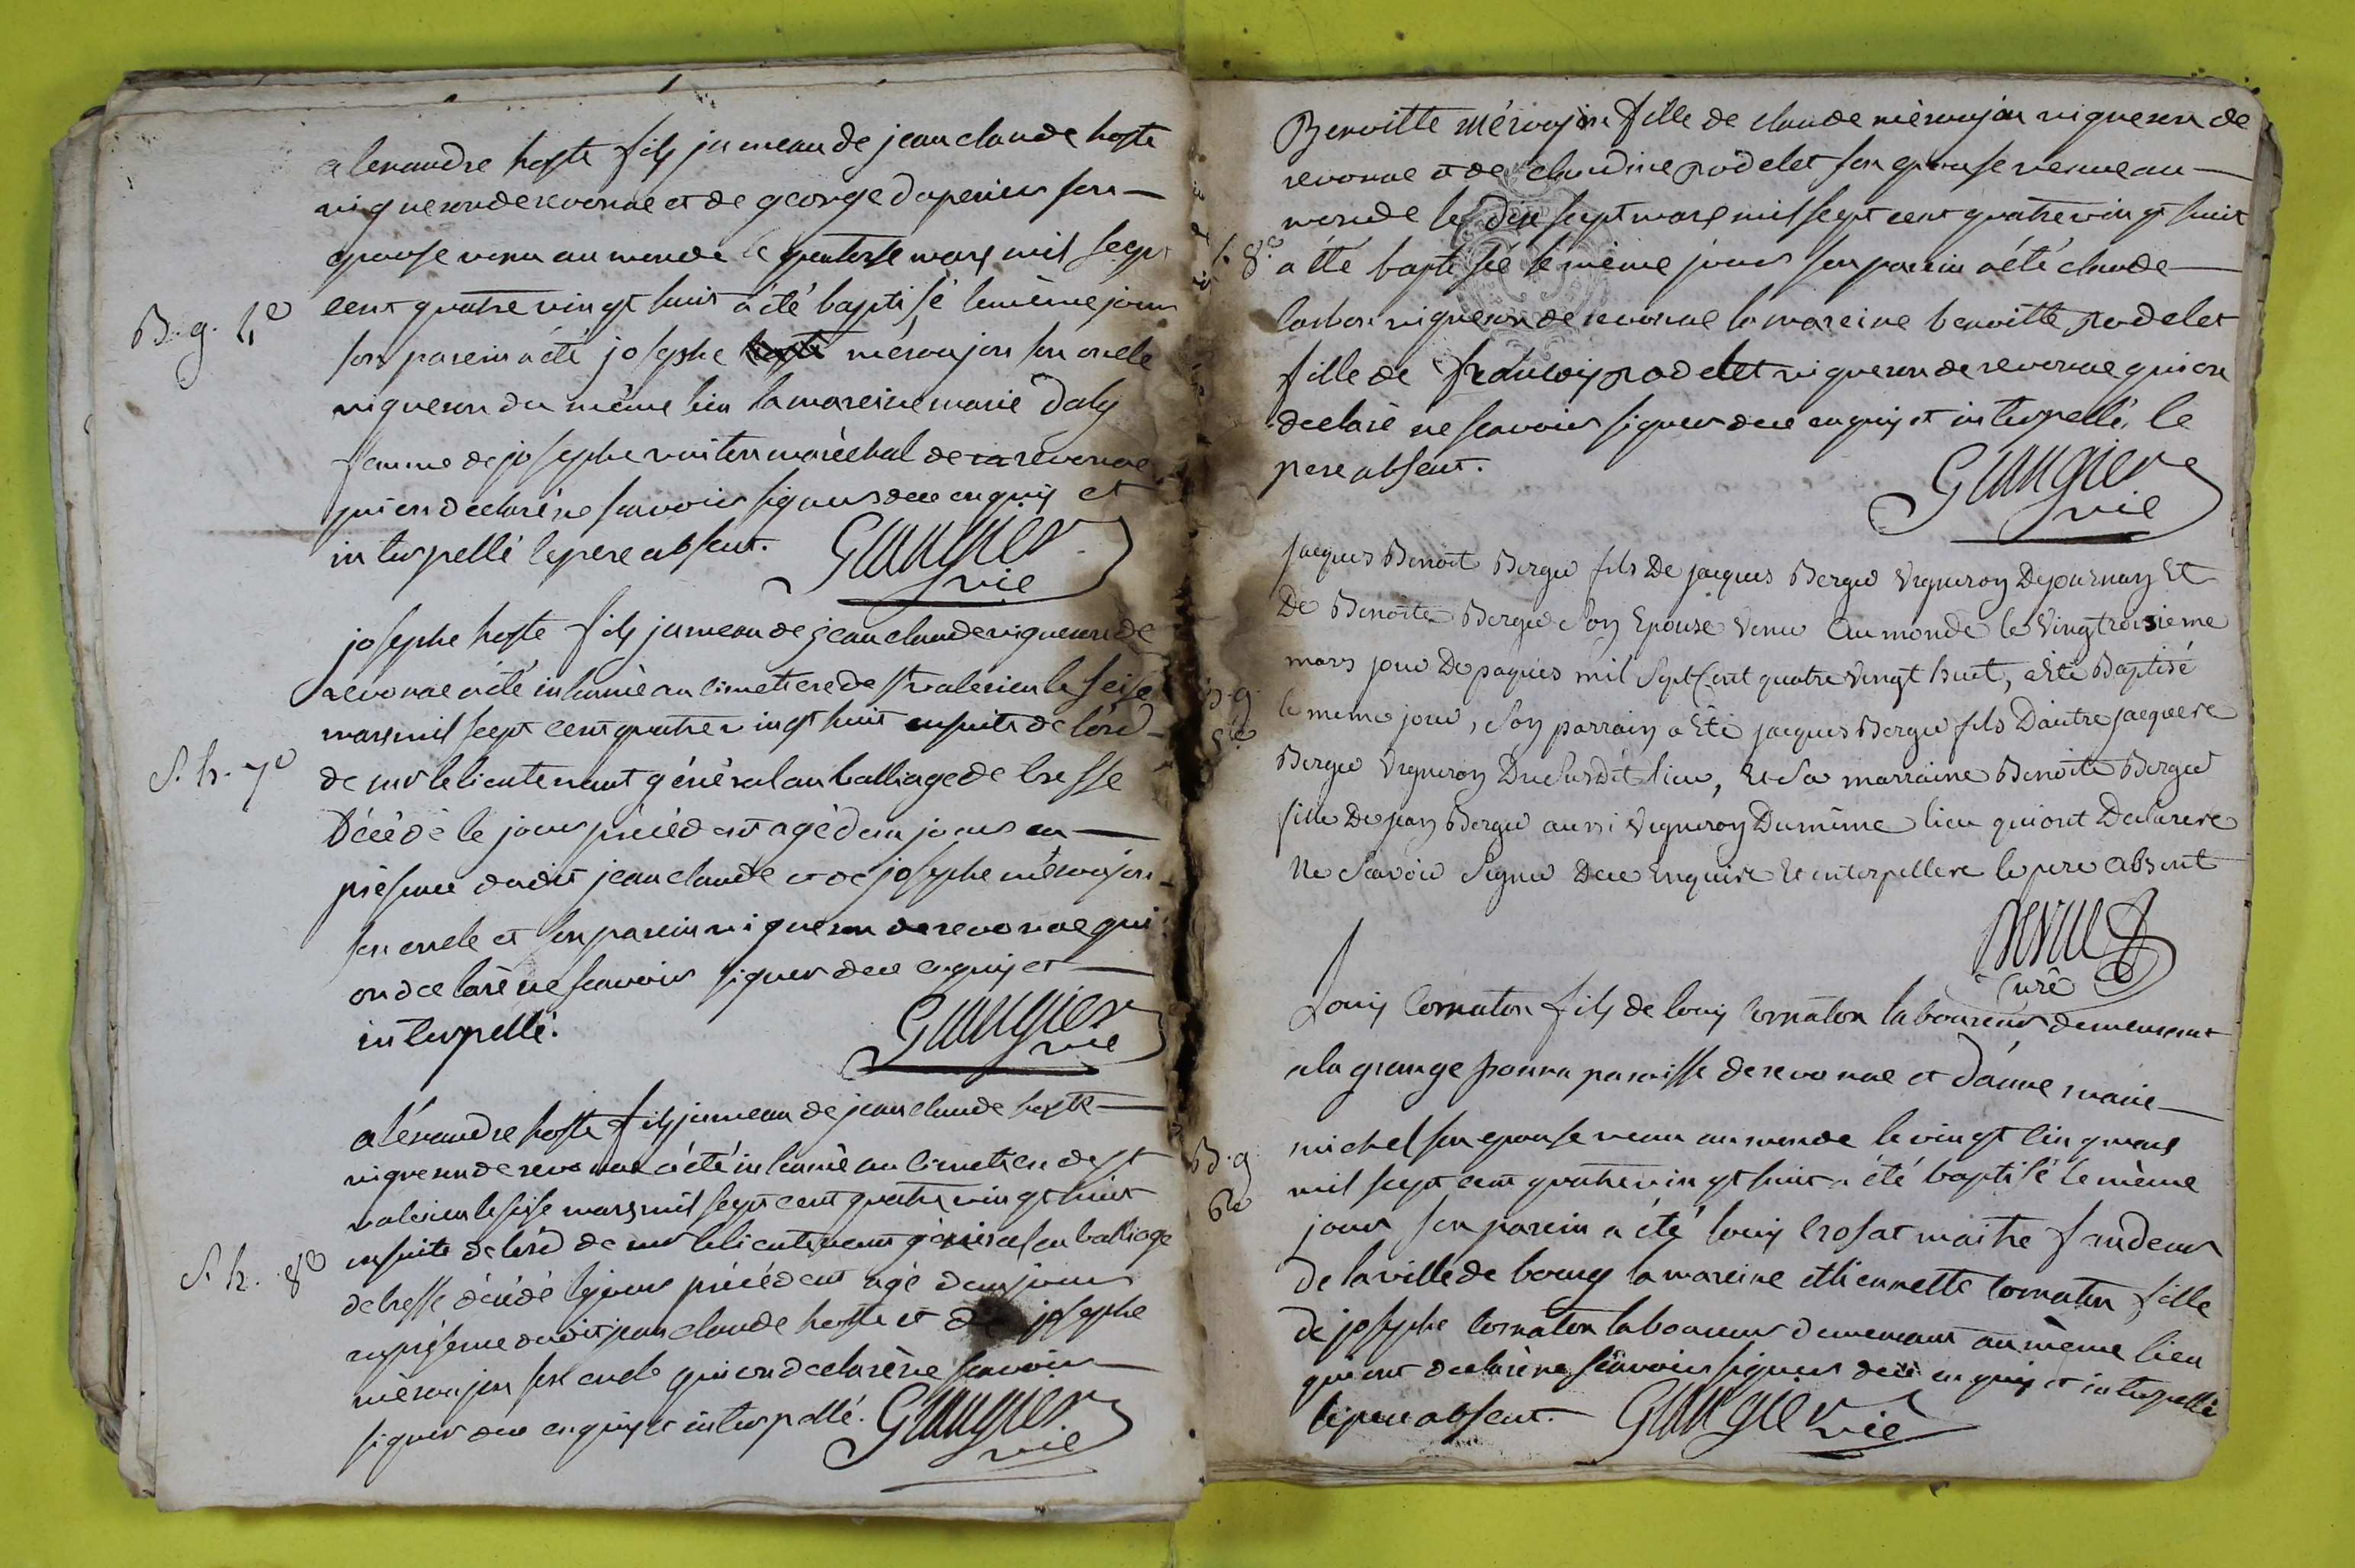 alexandre hoste fils jumeau de jean claude hoste
vigneron de revonas et de george daperieu son
epouse venu au monde le quatorse mars mil sept
cent quatre vingt huit a été baptisé le même jour
B. g. 4e
son parein a été josephe méroujon son oncle
vigneron du même lieu la mareine marie daly
femme de josephe maréchal de revonas
qui on declaré ne scavoir signer de ce enquis et
interpellé le pere absent. Grangier
vic
josephe hoste fils jumeau de jean claude vigneron de
revonas a été inhumé au cimetiere de st valerien le seise
mars mil sept cent quatre vingt huit ensuite de l'ord
S. h. 7e
de mr le lieutenant général au balliage de bresse
décédé le jour précédent agé deux jours en
présence dudit jean claude et de josephe méroujon
son oncle et son parein vigneron de revonas qui
on declaré ne scavoir signer de ce enquis et
interpellé. Grangier
vic
aléxandre hoste fils jumeau de jean claude hoste
vigneron de revonas a été inhumé au cimetiere de st
valerien le seise mars mil sept cent quatre vingt huit
ensuite de l'ord de mr le lieutenant général au balliage
S. h. 8e
de bresse décédé le jour précédent agé deux jours
en présence dudit jean claude hoste et de josephe
méroujon son oncle qui on declaré ne scavoir
signer de ce enquis et interpellé. Grangier
vic
Benoitte méroujon fille de claude méroujon vigneron de
revonas et de claudine rodelet son epouse venue au
monde le dix sept mars mil sept cent quatre vingt huit
8e
a été baptisée le même jour son parein a été claude
vigneron de revonas la mareine benoitte rodelet
fille de francois rodelet vigneron de revonas qui on
declaré ne scavoir signer de ce enquis et interpellé le
pere absent. Grangier
vic
Jacques Benoit Berger fils De jacques Berger Vigneron De journan Et
De Benoite Berger Son Epouse Venu Au monde le Vingtroisieme
mars jour De paques mil Sept Cent quatre Vingt huit, a Eté Baptisé
B. g.
5e
le meme jour, Son parrain a Eté jacques Berger fils D'autre jacques
Berger Vigneron Du Susdit lieu, Et Sa marraine Benoite Berger
fille De jean Berger aussi Vigneron Du même lieu qui ont Declarere
Ne Scavoir Signer De ce Enquire Et interpellere le pere Absent
Curé
Louis cornaton fils de louis cornaton laboureur demeurant
a la grange paroisse de revonas et d'anne marie
michel son epouse venu au monde le vingt cinq mars
B. g.
6e
mil sept cent quatre vingt huit a été baptisé le même
jour son parein a été louis crosat maitre fondeur
de la ville de bourg la mareine ethiennette cornaton fille
de josephe cornaton laboureur demeurant au même lieu
qui ont declaré ne scavoir signer de ce enquis et interpellé
le pere absent. Grangier vic